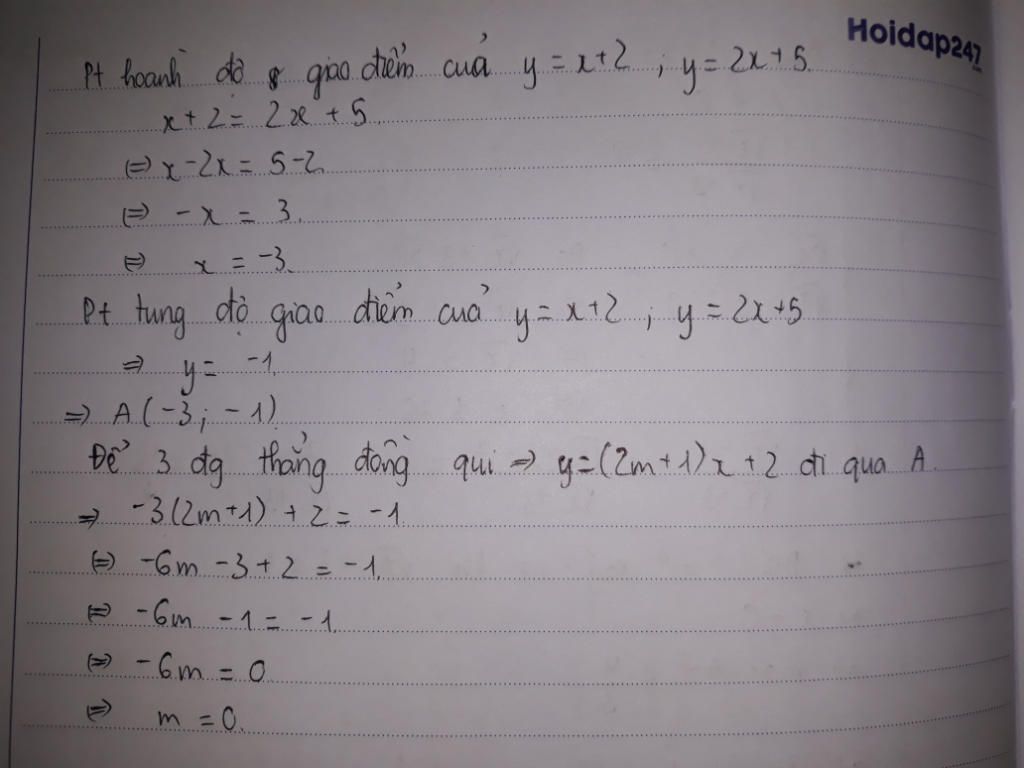 Hoidap247
Pt hoành độ giao điểm của y = x+2 ; y = 2x+5.
x+2 = 2x + 5
⇔ x-2x = 5-2
⇔ -x = 3.
⇔ x = -3.
Pt tung độ giao điểm của y = x+2 ; y = 2x+5
⇒ y = -1
⇒ A(-3; -1)
Để 3 đg thẳng đồng qui ⇒ y=(2m+1)x+2 đi qua A.
⇒ -3(2m+1) + 2 = -1
⇔ -6m -3+2 = -1.
⇔ -6m -1 = -1
⇔ -6m = 0
⇔ m = 0.